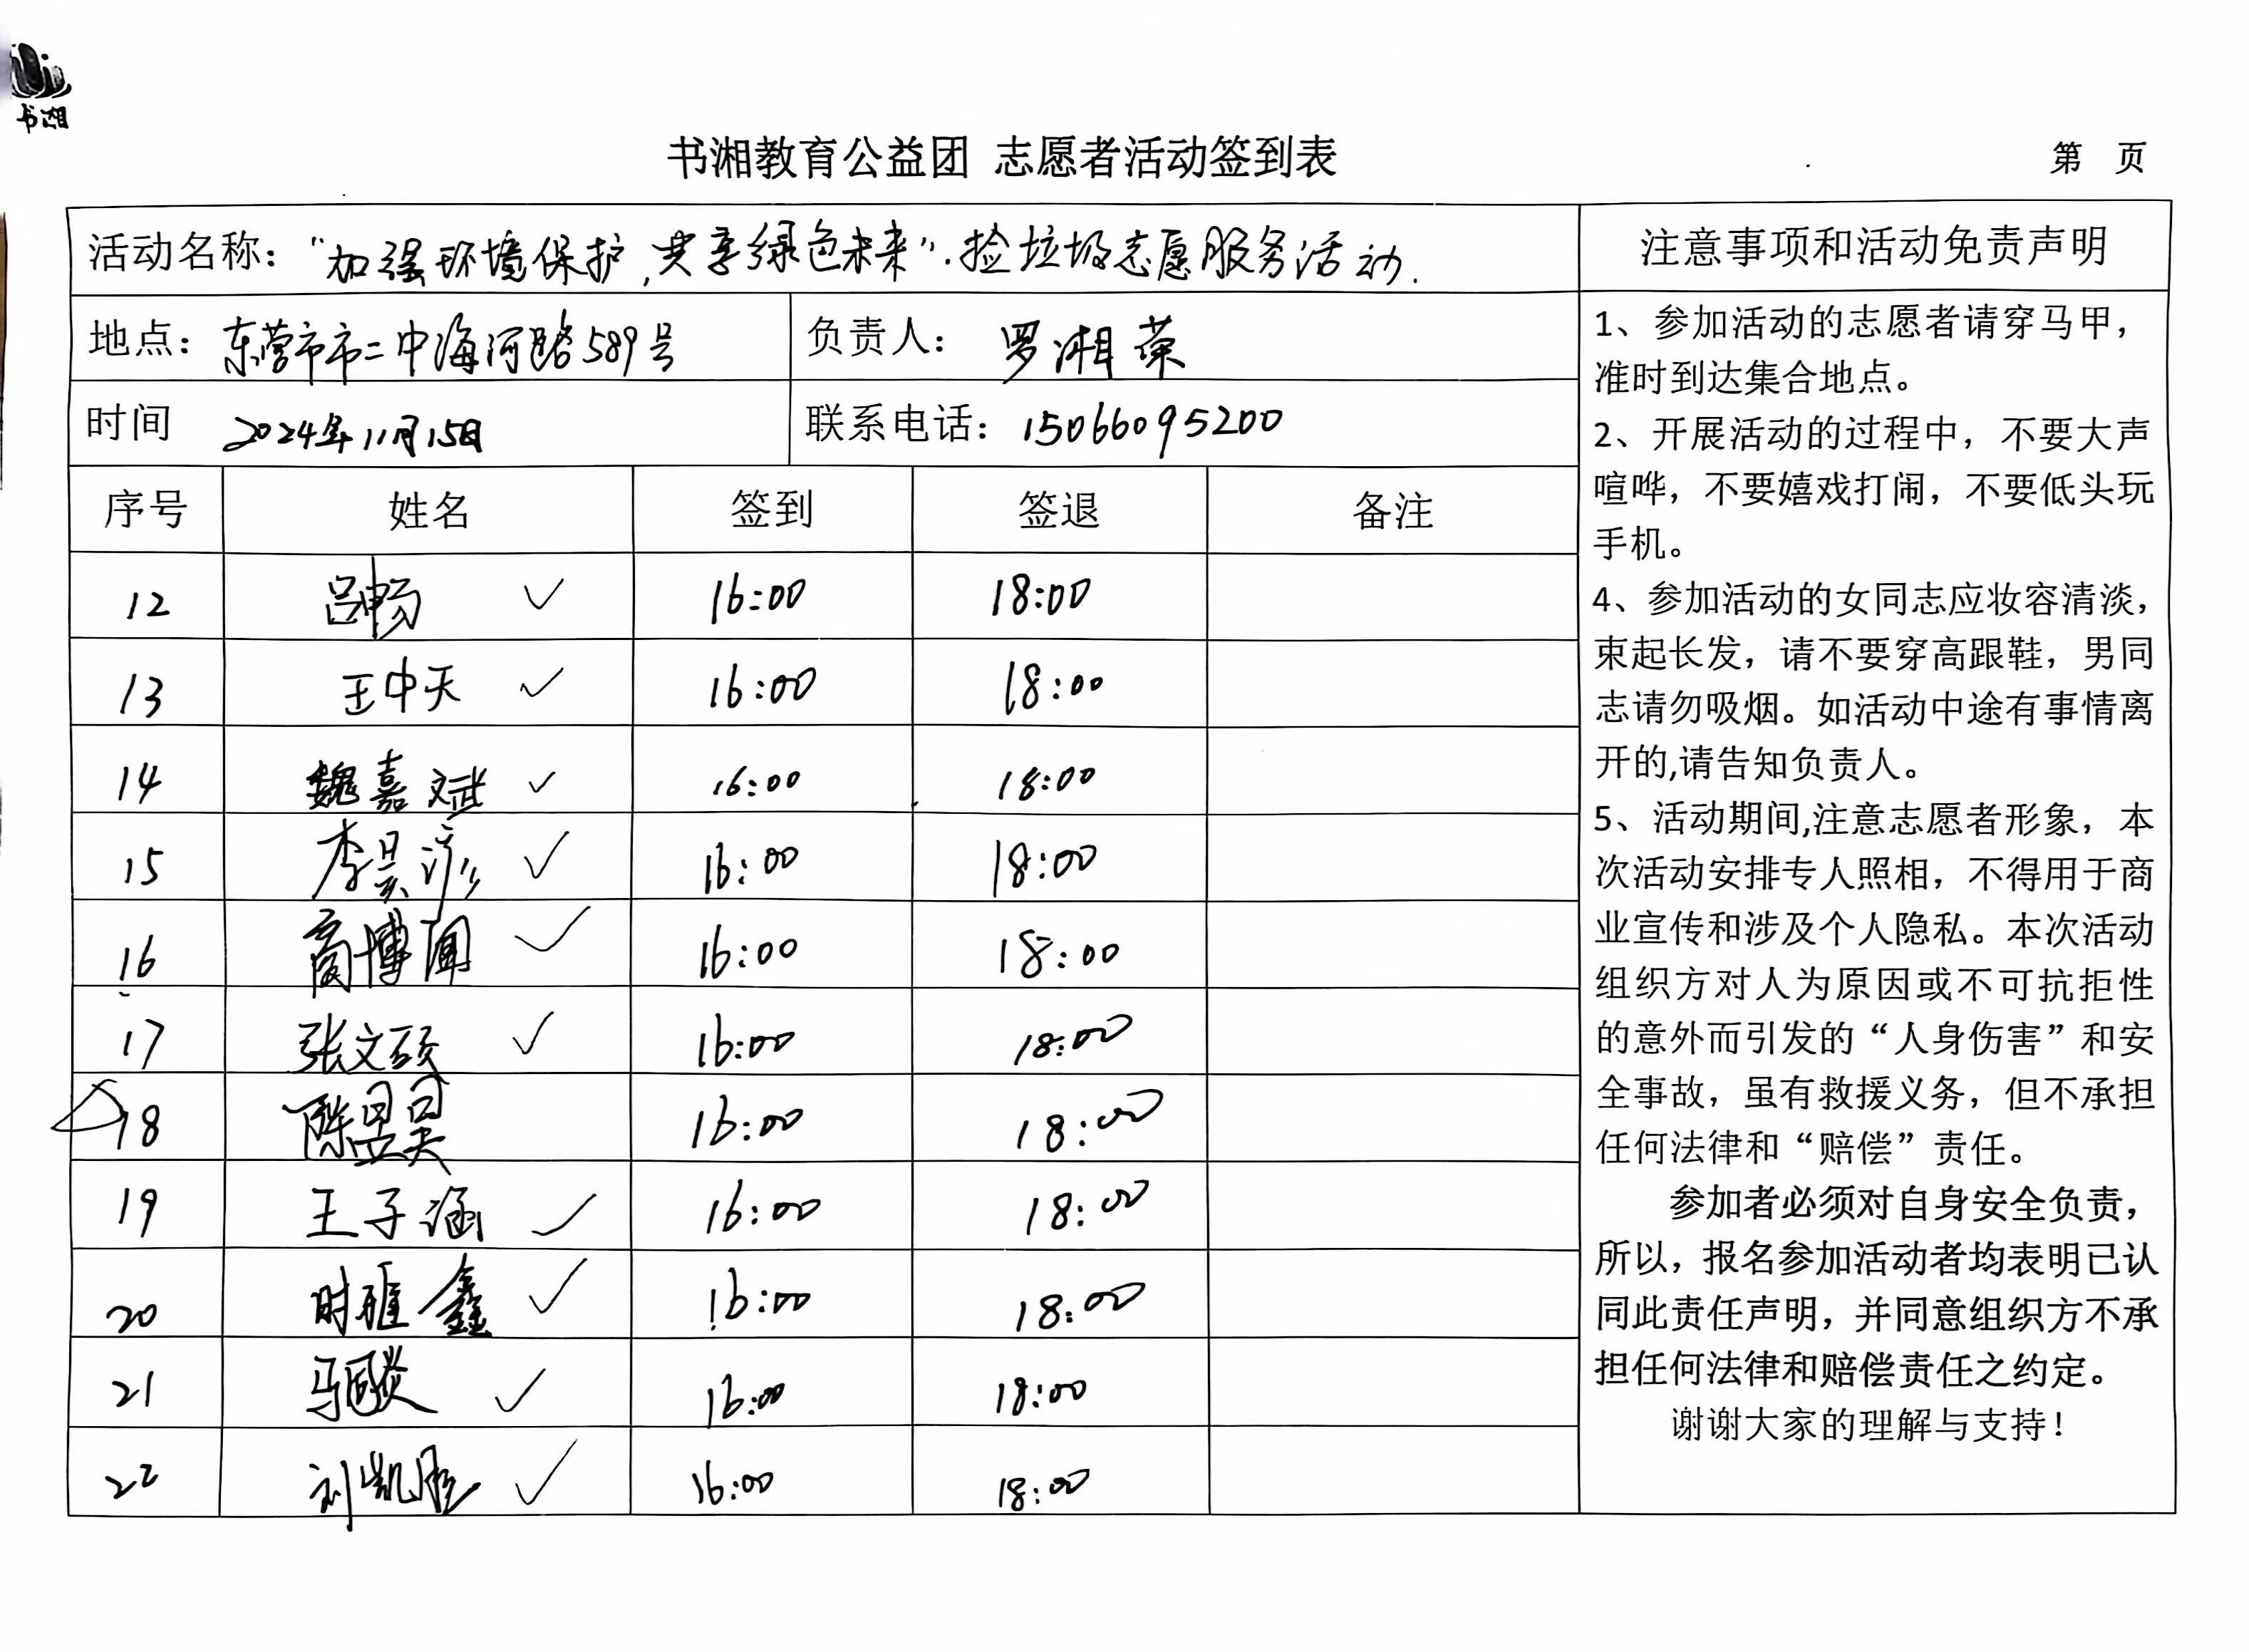 书湘
书湘教育公益团 志愿者活动签到表
第 页
活动名称："加强环境保护,共享绿色未来".捡垃圾志愿服务活动.
地点：东营市市二中海河路589号
负责人：罗湘荣
时间 2024年11月15日
联系电话：15066095200
序号 姓名 签到 签退 备注
12 吕畅 ✓ 16:00 18:00
13 王中天 ✓ 16:00 18:00
14 魏嘉斌 ✓ 16:00 18:00
15 李昊 ✓ 16:00 18:00
16 商博闻 ✓ 16:00 18:00
17 张文硕 ✓ 16:00 18:00
18 陈昱昊 16:00 18:00
19 王子涵 ✓ 16:00 18:00
20 时 鑫 ✓ 16:00 18:00
21 马 ✓ 16:00 18:00
22 刘凯 ✓ 16:00 18:00
注意事项和活动免责声明
1、参加活动的志愿者请穿马甲，
准时到达集合地点。
2、开展活动的过程中，不要大声
喧哗，不要嬉戏打闹，不要低头玩
手机。
4、参加活动的女同志应妆容清淡，
束起长发，请不要穿高跟鞋，男同
志请勿吸烟。如活动中途有事情离
开的,请告知负责人。
5、活动期间,注意志愿者形象，本
次活动安排专人照相，不得用于商
业宣传和涉及个人隐私。本次活动
组织方对人为原因或不可抗拒性
的意外而引发的“人身伤害”和安
全事故，虽有救援义务，但不承担
任何法律和“赔偿”责任。
参加者必须对自身安全负责，
所以，报名参加活动者均表明已认
同此责任声明，并同意组织方不承
担任何法律和赔偿责任之约定。
谢谢大家的理解与支持！